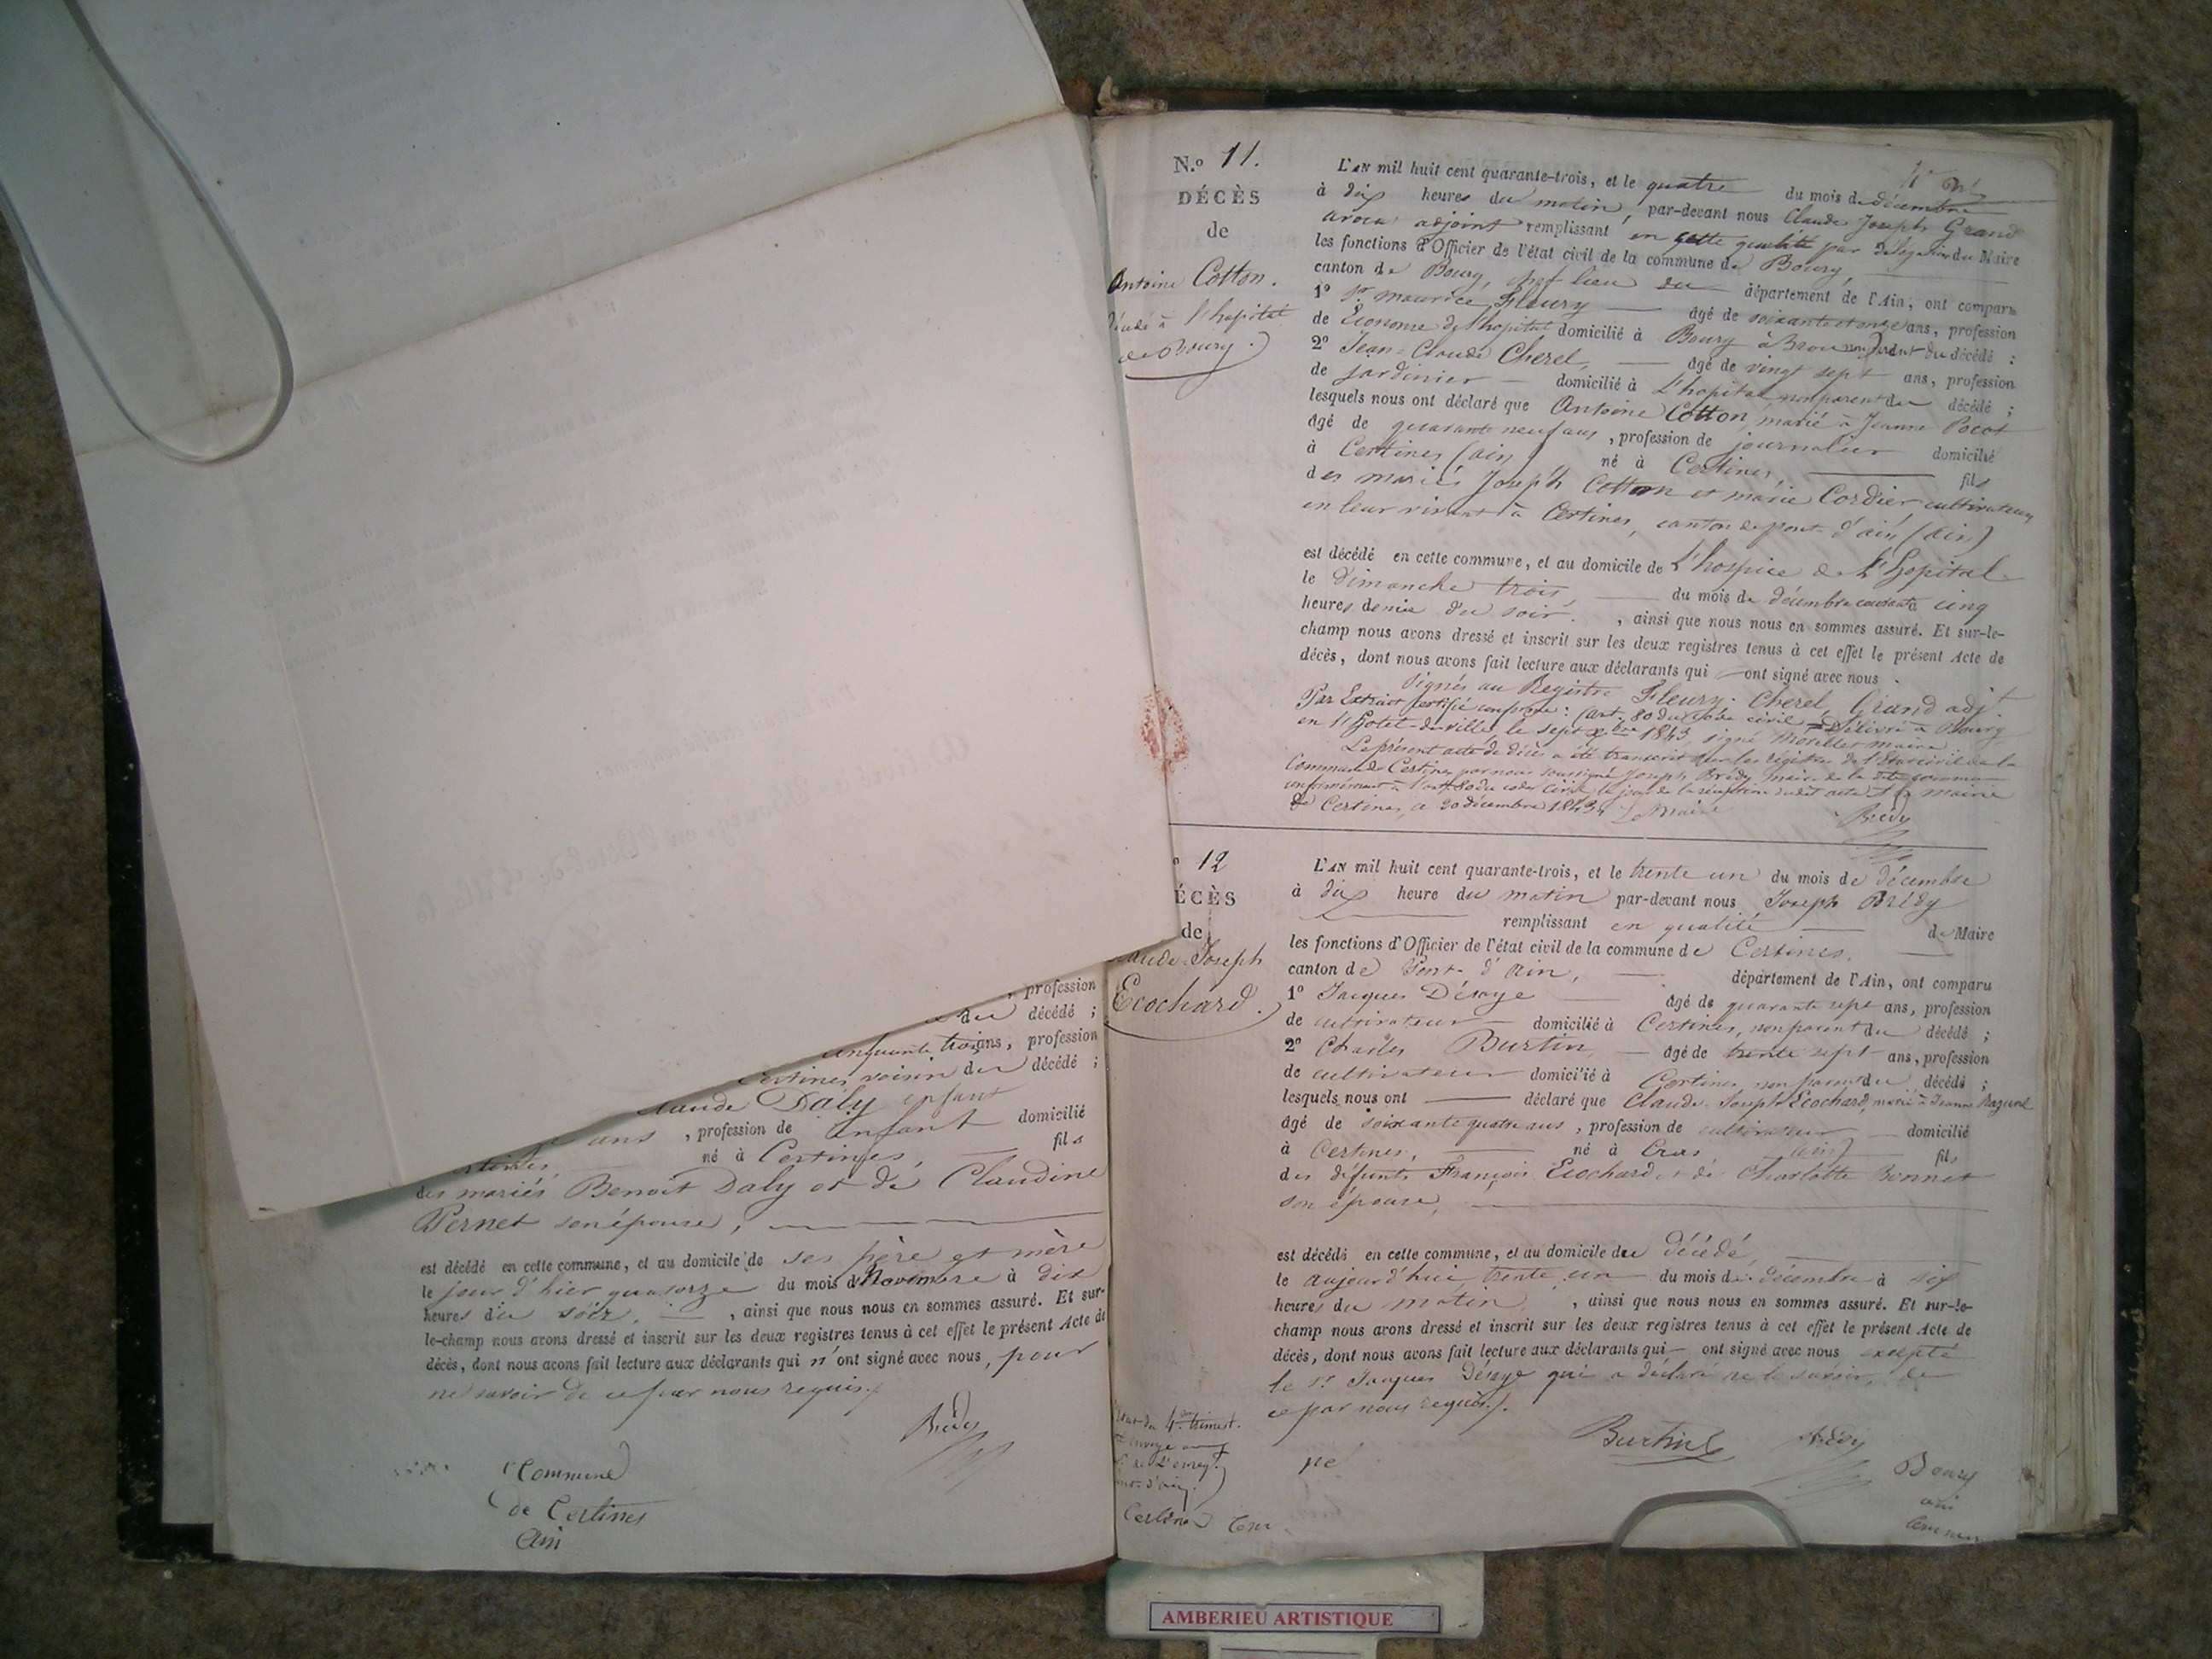 , profession
du décédé ;
cinquante trois ans, profession
Certines voisin du décédé ;
Claude Daly enfant
ans , profession de enfant domicilié
né à Certines, fils
des mariés Benoit Daly et de Claudine
Pernet son épouse,
est décédé en cette commune, et au domicile de ses père et mère
le jour d'hier quatorze du mois de Novembre à dix
heures du soir. , ainsi que nous nous en sommes assuré. Et sur-
le-champ nous avons dressé et inscrit sur les deux registres tenus à cet effet le présent Acte de
décès, dont nous avons fait lecture aux déclarants qui n'ont signé avec nous, pour
ne savoir de ce par nous requis.
Brédy
Commune
de Certines
Ain
N.o 11.
DÉCÈS
de
Antoine Cotton.
décédé à l'hopital
de Bourg.
L'AN mil huit cent quarante-trois, et le quatre du mois de décembre
à dix heures du matin, par-devant nous Claude Joseph Grand
avocat adjoint remplissant en cette qualité par délégation du Maire
les fonctions d'Officier de l'état civil de la commune de Bourg,
canton de Bourg, chef lieu du département de l'Ain, ont comparu
1o Sr. maurice Fleury âgé de soixante et onze ans, profession
de Econome de l'hopital domicilié à Bourg à Brou non parent du décédé :
2o Jean-Claude Cherel, âgé de vingt sept ans, profession
de jardinier domicilié à L'hopital non parent du décédé ;
lesquels nous ont déclaré que Antoine Cotton, marié à Jeanne Pocot
âgé de quarante neuf ans, profession de journalier domicilié
à Certines (ain) né à Certines, fils
des mariés Joseph Cotton et marie Cordier, cultivateurs
en leur vivant à Certines, canton de pont-d'ain (ain)
est décédé en cette commune, et au domicile de L'hospice de L'hopital
le dimanche trois du mois de décembre courant à cinq
heures demie du soir. , ainsi que nous nous en sommes assuré. Et sur-le-
champ nous avons dressé et inscrit sur les deux registres tenus à cet effet le présent Acte de
décès, dont nous avons fait lecture aux déclarants qui ont signé avec nous.
Signés au Registre Fleury. Cherel, Grand adjt
Par Extrait certifié conforme : (art. 80 du code civil Délivré à Bourg
en l'Hotel-de-ville, le sept xbre 1843 signé maire
Le présent acte de décès a été transcrit sur les régistres de l'état civil de la
Commune de Certines par nous soussigné Joseph Brédy maire de la dite commune
conformément à l'art 80 du code civil, le jour de la réception dudit acte à la mairie
de Certines, ce 20 décembre 1843. Le Maire
Brédy
12
ÉCÈS
de
Claude-Joseph
Ecochard.
L'AN mil huit cent quarante-trois, et le trente un du mois de décembre
à dix heure du matin par-devant nous Joseph Brédy
remplissant en qualité de Maire
les fonctions d'Officier de l'état civil de la commune de Certines.
canton de Pont-d'Ain, département de l'Ain, ont comparu
1o Jacques Désaye âgé de quarante sept ans, profession
de cultivateur domicilié à Certines, non parent du décédé ;
2o Charles Burtin âgé de trente sept ans, profession
de cultivateur domicilié à Certines, non parent du décédé ;
lesquels nous ont déclaré que Claude-Joseph Ecochard, marié à Jeanne
âgé de soixante quatre ans, profession de cultivateur domicilié
à Certines, né à Cras (ain) fils
des défunts François Ecochard, et de Charlotte Bonnet
son épouse,
est décédé en cette commune, et au domicile du décédé
le aujourd'hui, trente un du mois de décembre à six
heures du matin , ainsi que nous nous en sommes assuré. Et sur-le-
champ nous avons dressé et inscrit sur les deux registres tenus à cet effet le présent Acte de
décès, dont nous avons fait lecture aux déclarants qui ont signé avec nous excepté
le Sr. Jacques Désaye qui a déclaré ne le savoir, de
ce par nous requis.
Burtin Brédy
du 4me trimest.
Certines
Bourg
ain
AMBERIEU ARTISTIQUE